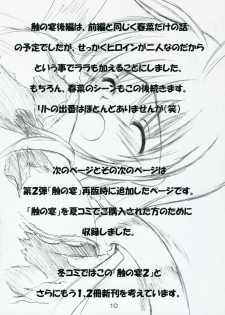 触の宴後編は、前編と同じく春菜だけの話
の予定でしたが、せっかくヒロインが二人なのだから
という事でララも加えることにしました。
もちろん、春菜のシーンもこの後続きます。
「リトの出番はほとんどありませんが（笑）
次のページとその次のページは
第2弾「触の宴」再版時に追加したページです。
「触の宴」を夏コミでご購入された方のために
収録しました。
冬コミではこの「触の宴2」と
さらにもう1,2冊新刊を考えています。
10